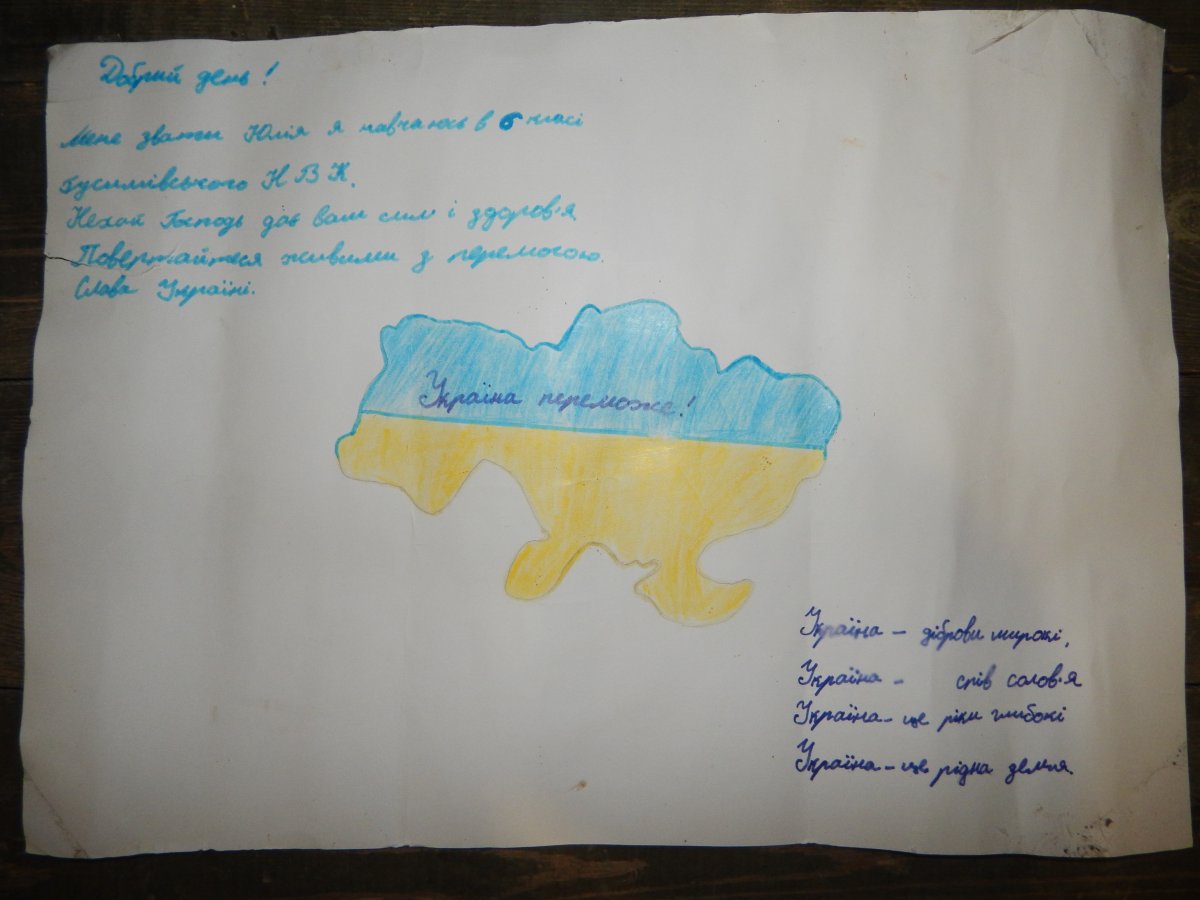 Добрий день!
Мене звати Юлія я навчаюсь в 6 класі
НВК.
Нехай Господь дає вам сил і здоров'я
Повертайтеся живими з перемогою.
Слава Україні.
Україна переможе!
Україна – діброви широкі,
Україна – спів солов'я
Україна – це ріки глибокі
Україна – це рідна земля.